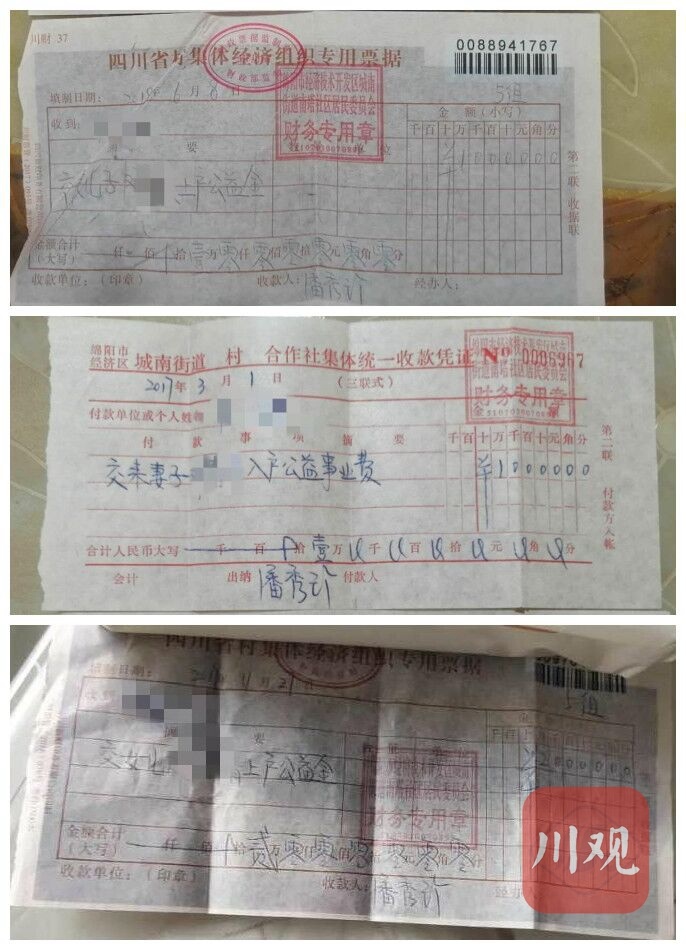 川财 37
四川省村集体经济组织专用票据
0088941767
5组
填制日期: 年6月 日
收到:
金 额(小写)
摘 要
单位
千百十万千百十元角分
交儿子 上户公益金
¥1000000
金额合计
(大写) 仟 佰 拾壹万零仟零佰零拾零元零角零分
收款单位:(印章) 收款人: 潘秀 经办人:
第二联 收据联
绵阳市经济技术开发区城南
街道南塔社区居民委员会
财务专用章
绵阳市
经济区 城南街道 村 合作社集体统一收款凭证 No 0006967
2017年3月1日 (三联式)
付款单位或个人姓名
付 款 事 项 摘 要 千百十万千百十元角分
交来妻子 入户公益事业费 ¥1000000
合计人民币大写 千 百 拾壹万 千 百 拾 元 角 分
会计 出纳 潘秀 付款人
第二联 付款方入帐
财务专用章
四川省村集体经济组织专用票据
填制日期: 年11月21日
5组
收到:
摘 要
交女儿 上户公益金
金额合计
(大写) 仟 佰 拾贰万零仟零佰零拾零元零角零分
收款单位:(印章) 收款人: 潘秀 经办
财务专用章
川观